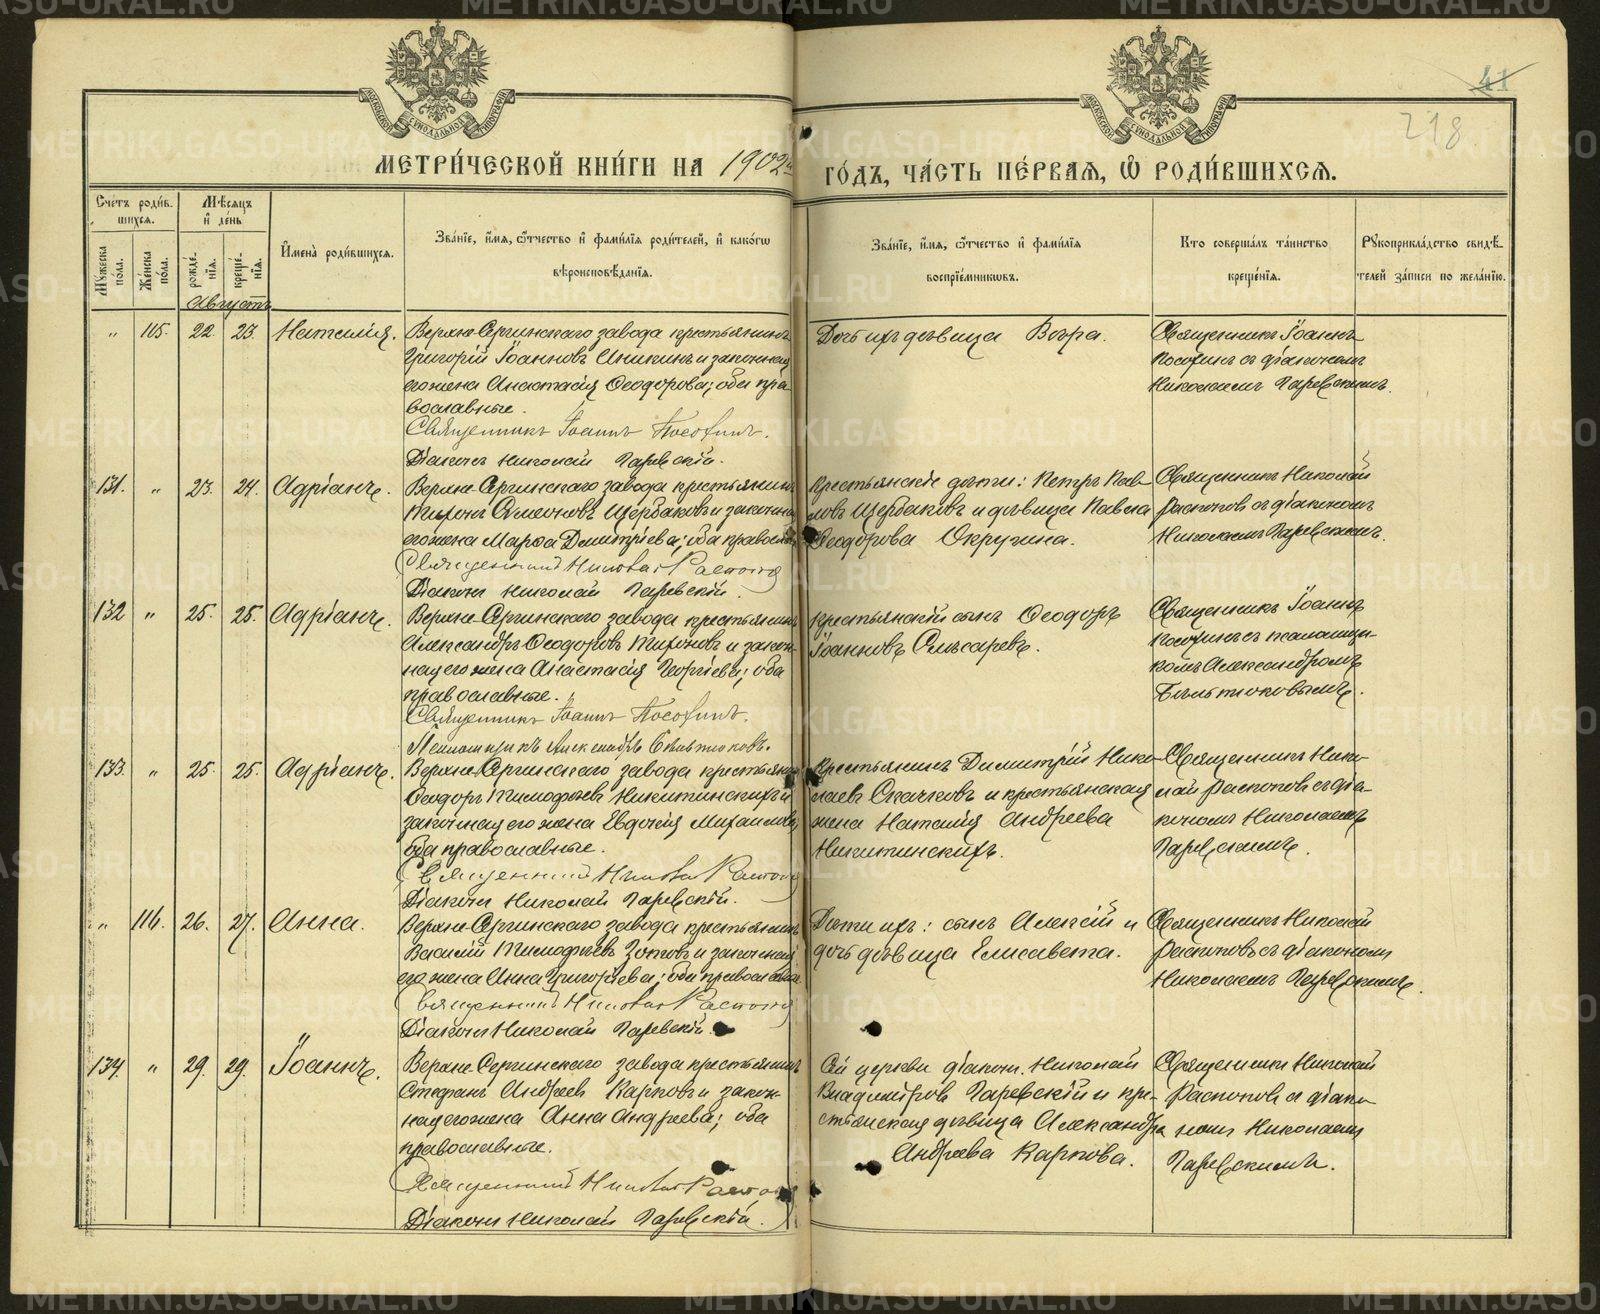 МЕТРИ́ЧЕСКОЙ КНИ́ГИ НА 1902й ГО́ДЪ, ЧА́СТЬ ПЕ́РВАЯ, Ѽ РОДИ́ВШИХСЯ.
41
218
Сче́тъ роди́в.
шихся.
Мѣ́сяцъ
и де́нь
Мꙋ́жеска
по́ла.
Же́нска
по́ла.
рожде́-
нїя.
креще́-
нїя.
И҆мена̀ роди́вшихся.
Зва́нїе, и҆́мя, ѻ҆́тчество и҆ фами́лїя роди́телей, и҆ како́гѡ
вѣроисповѣ́данїя.
Зва́нїе, и҆́мя, ѻ҆́тчество и҆ фами́лїя
воспрїе́мниковъ.
Кто соверша́лъ та́инство
креще́нїя.
Рꙋкоприкла́дство свидѣ́-
телей за́писи по жела́нїю.
Августъ
" 115. 22. 23. Наталія.
Верхне-Сергинскаго завода крестьянинъ
Григорій Іоанновъ Аникинъ и законная
его жена Анастасія Ѳеодорова; оба пра-
вославные.
Священникъ Іоаннъ Посохинъ.
Діаконъ Николай Паревскій.
Дочь ихъ дѣвица Вѣра.
Священникъ Іоаннъ
Посохинъ съ діакономъ
Николаемъ Паревскимъ.
131. " 23. 24. Адріанъ.
Верхне-Сергинскаго завода крестьянинъ
Тихонъ Симеоновъ Щербаковъ и законная
его жена Марѳа Димитріева; оба правосл
Священникъ Николай Распоповъ
Діаконъ Николай Паревскій.
Крестьянскіе дѣти: Петръ Пав-
ловъ Щербаковъ и дѣвица Павла
Ѳеодорова Округина.
Священникъ Николай
Распоповъ съ діакономъ
Николаемъ Паревскимъ.
132 " 25. 25. Адріанъ.
Верхне-Сергинскаго завода крестьянинъ
Александръ Ѳеодоровъ Тихоновъ и закон-
ная его жена Анастасія Георгіева; оба
православные.
Священникъ Іоаннъ Посохинъ.
Псаломщикъ Александръ Бѣльтюковъ.
Крестьянскій сынъ Ѳеодоръ
Іоанновъ Слѣсаревъ.
Священникъ Іоаннъ
Посохинъ съ псаломщи-
комъ Александромъ
Бѣльтюковымъ.
133. " 25. 25. Адріанъ.
Верхне-Сергинскаго завода крестьянинъ
Ѳеодоръ Тимоѳѣевъ Никитинскихъ и
законная его жена Евдокія Михаилова
оба православные.
Священникъ Николай Распоповъ
Діаконъ Николай Паревскій.
Крестьянинъ Димитрій Нико-
лаевъ Скачковъ и крестьянская
жена Наталія Андреева
Никитинскихъ.
Священникъ Нико-
лай Распоповъ съ діа-
кономъ Николаемъ
Паревскимъ.
" 116. 26. 27. Анна.
Верхне-Сергинскаго завода крестьянинъ
Василій Тимоѳѣевъ Зотовъ и законная
его жена Анна Григоріева; оба православные
Священникъ Николай Распоповъ
Діаконъ Николай Паревскій.
Дѣти ихъ: сынъ Алексій и
дочь дѣвица Елисавета.
Священникъ Николай
Распоповъ съ діакономъ
Николаемъ Паревскимъ.
134. " 29. 29. Іоаннъ.
Верхне-Сергинскаго завода крестьянинъ
Стефанъ Андреевъ Карповъ и закон-
ная его жена Анна Андреева; оба
православные.
Священникъ Николай Распоповъ
Діаконъ Николай Паревскій.
Сей церкви діаконъ Николай
Владиміровъ Паревскій и кре-
стьянская дѣвица Александра
Андреева Карпова.
Священникъ Николай
Распоповъ съ діако-
номъ Николаемъ
Паревскимъ.
METRIKI.GASO-URAL.RU